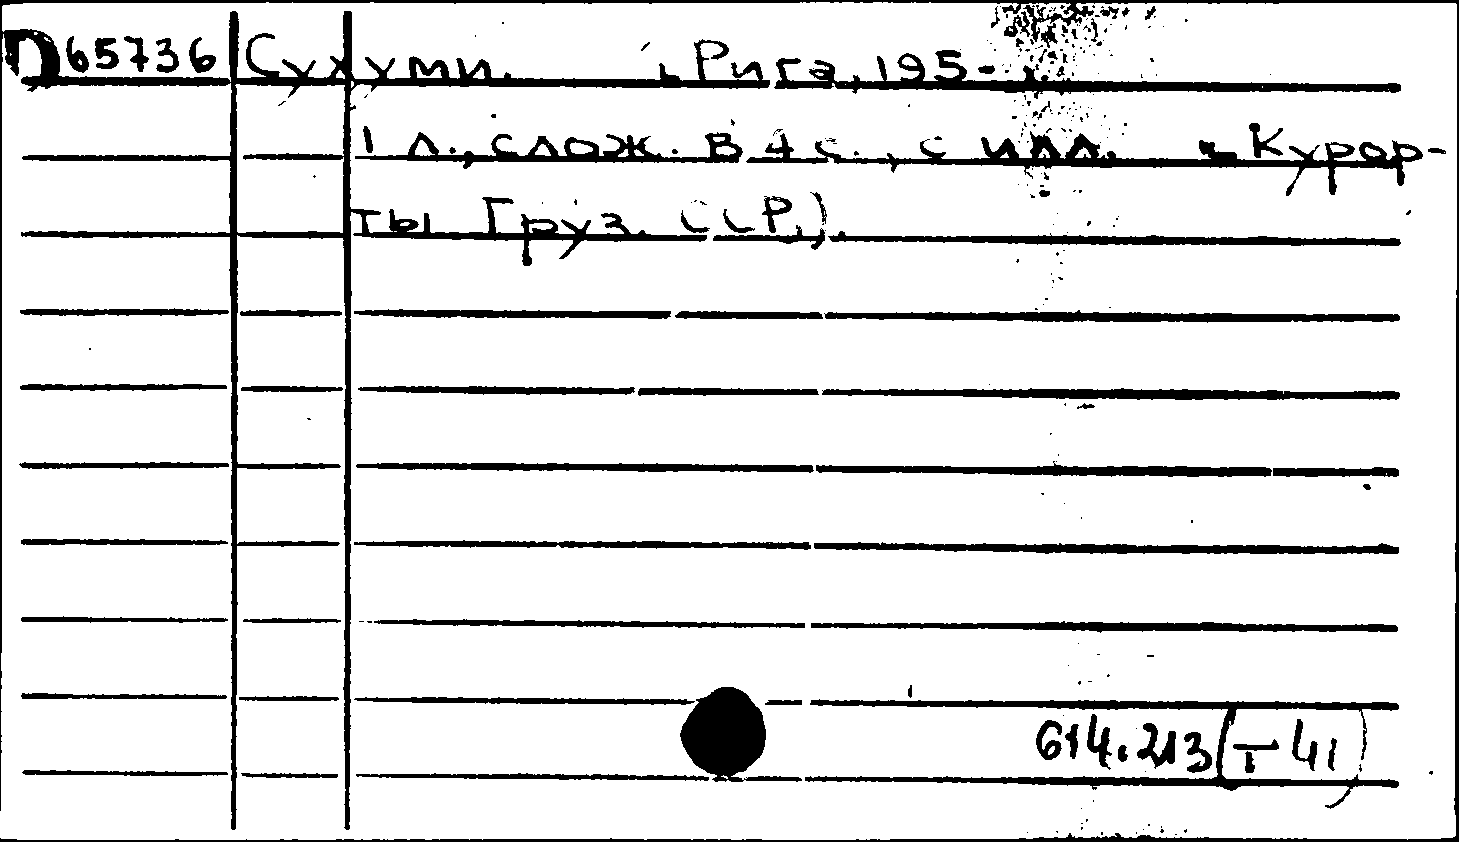 D65736 Сухуми. [Рига, 195-].
1 л., слож. в 4 с., с илл. (Курор-
ты Груз. ССР.).
614.213(Т-41)